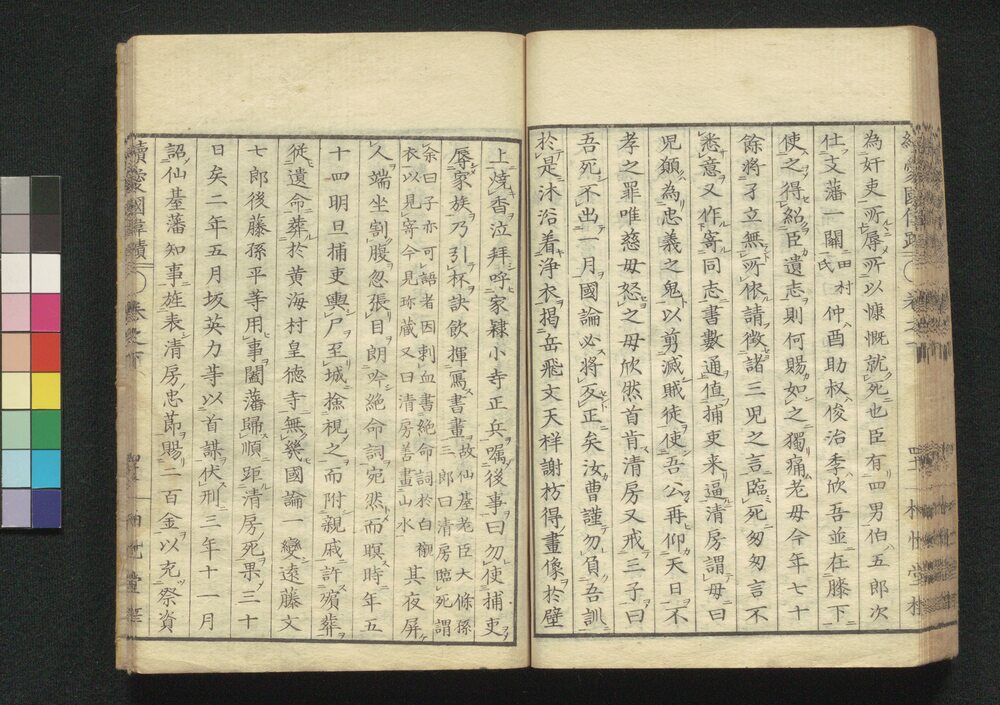 為奸吏所辱所以慷慨就死也臣有四男伯五郎次
仕支藩一關田村氏仲酉助叔俊治季欣吾並在膝下
使之得紹臣遺志則何賜如之獨痛老母今年七十
餘將孑立無所依請徵諸三兒之言臨死匆匆言不
悉意又作寄同志書數通値捕吏来逼清房謂母曰
兒願為忠義之鬼以剪滅賊徒使吾公再仰天日不
孝之罪唯慈母恕之母欣然首肯清房又戒三子曰
吾死不出一月國論必將反正矣汝曹謹勿負吾訓
於是沐浴着浄衣揭岳飛文天祥謝枋得畫像於壁
上燒香泣拜呼家隷小寺正兵囑後事曰勿使捕吏
辱家族乃引杯訣飲揮寫書畫故仙基老臣大條孫三郎曰清房臨死謂
余曰子亦可語者因刺血書絶命詞於白襯衣以見寄今見珎藏又曰清房善畫山水其夜屏
人端坐割腹忽張目朗吟絶命詞宛然而瞑時年五
十四明旦捕吏輿尸至城撿視之而附親戚許殯葬
従遺命葬於黄海村皇德寺無幾國論一變遠藤文
七郎後藤孫平等用事闔藩歸順距清房死果三十
日矣二年五月坂英力等以首謀伏刑三年十一月
詔仙基藩知事旌表清房忠節賜二百金以充祭資
續愛國偉績 卷之下